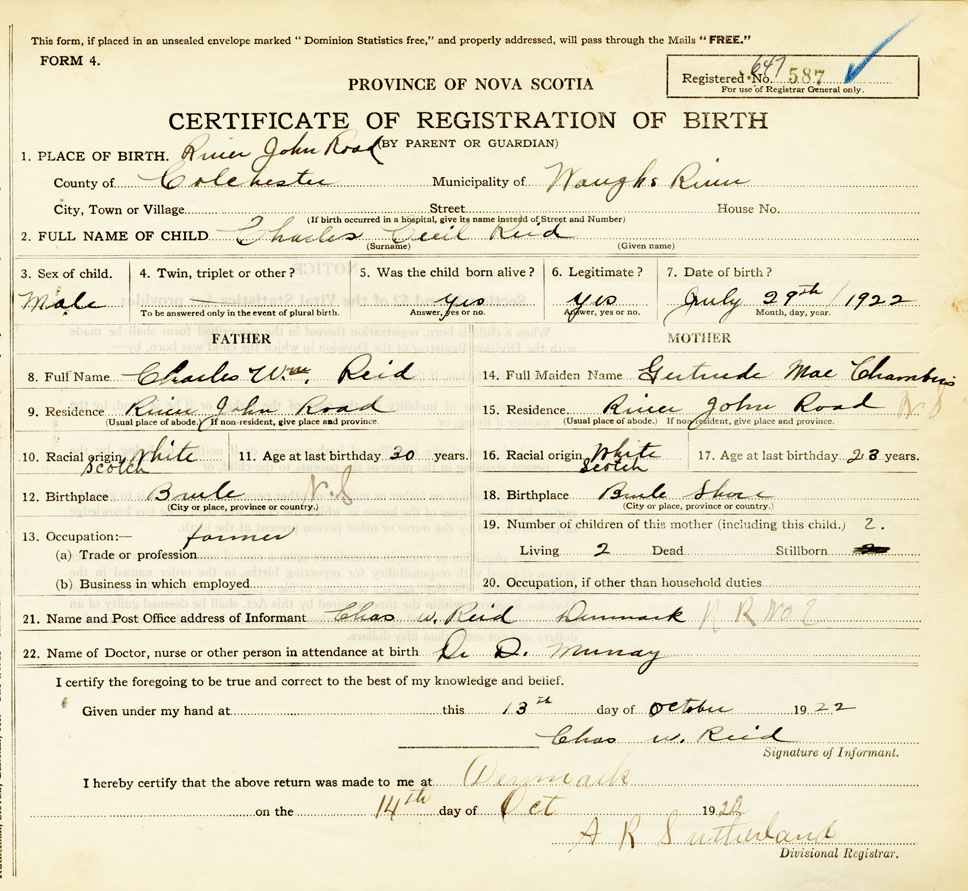 This form, if placed in an unsealed envelope marked "Dominion Statistics free," and properly addressed, will pass through the Mails "FREE."
FORM 4.
PROVINCE OF NOVA SCOTIA
Registered No. 647 587
For use of Registrar General only.
CERTIFICATE OF REGISTRATION OF BIRTH
(BY PARENT OR GUARDIAN)
1. PLACE OF BIRTH. River John Road
County of Colchester Municipality of Waughs River
City, Town or Village Street House No.
(If birth occurred in a hospital, give its name instead of Street and Number)
2. FULL NAME OF CHILD Charles Cecil Reid
(Surname) (Given name)
3. Sex of child. 4. Twin, triplet or other? 5. Was the child born alive? 6. Legitimate? 7. Date of birth?
Male — yes yes July 29th / 1922
To be answered only in the event of plural birth. Answer, yes or no. Answer, yes or no. Month, day, year.
FATHER MOTHER
8. Full Name Charles Wm. Reid 14. Full Maiden Name Gertrude Mae Chambers
9. Residence River John Road 15. Residence. River John Road N S
(Usual place of abode.) If non-resident, give place and province. (Usual place of abode.) If non-resident, give place and province.
10. Racial origin White Scotch 11. Age at last birthday 30 years. 16. Racial origin White Scotch 17. Age at last birthday 23 years.
12. Birthplace Brule N.S 18. Birthplace Brule Shore
(City or place, province or country.) (City or place, province or country.)
19. Number of children of this mother (including this child.) 2.
13. Occupation:— farmer
(a) Trade or profession Living 2 Dead Stillborn
(b) Business in which employed 20. Occupation, if other than household duties
21. Name and Post Office address of Informant Chas W. Reid Denmark R R No 2
22. Name of Doctor, nurse or other person in attendance at birth Dr D. Murray
I certify the foregoing to be true and correct to the best of my knowledge and belief.
Given under my hand at this 13th day of October 1922
Chas W. Reid
Signature of Informant.
I hereby certify that the above return was made to me at Denmark
on the 14th day of Oct 1922
A R Sutherland
Divisional Registrar.